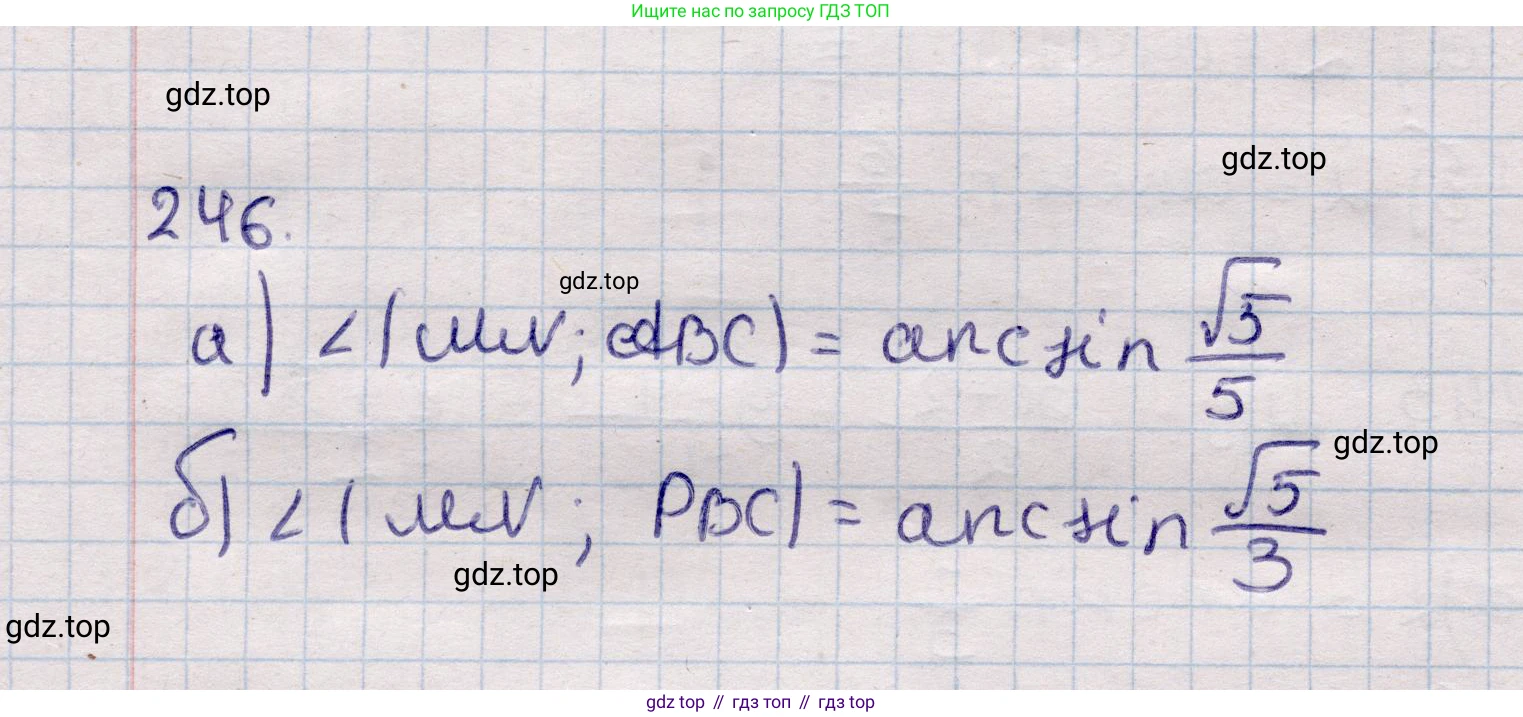 Ищите нас по запросу ГДЗ ТОП
gdz.top
gdz.top
246.
gdz.top
а) <(MN; ABC) = arcsin √5/5
gdz.top
б) <(MN; PBC) = arcsin √5/3
gdz.top
gdz.top
gdz top // гдз топ // гдз top